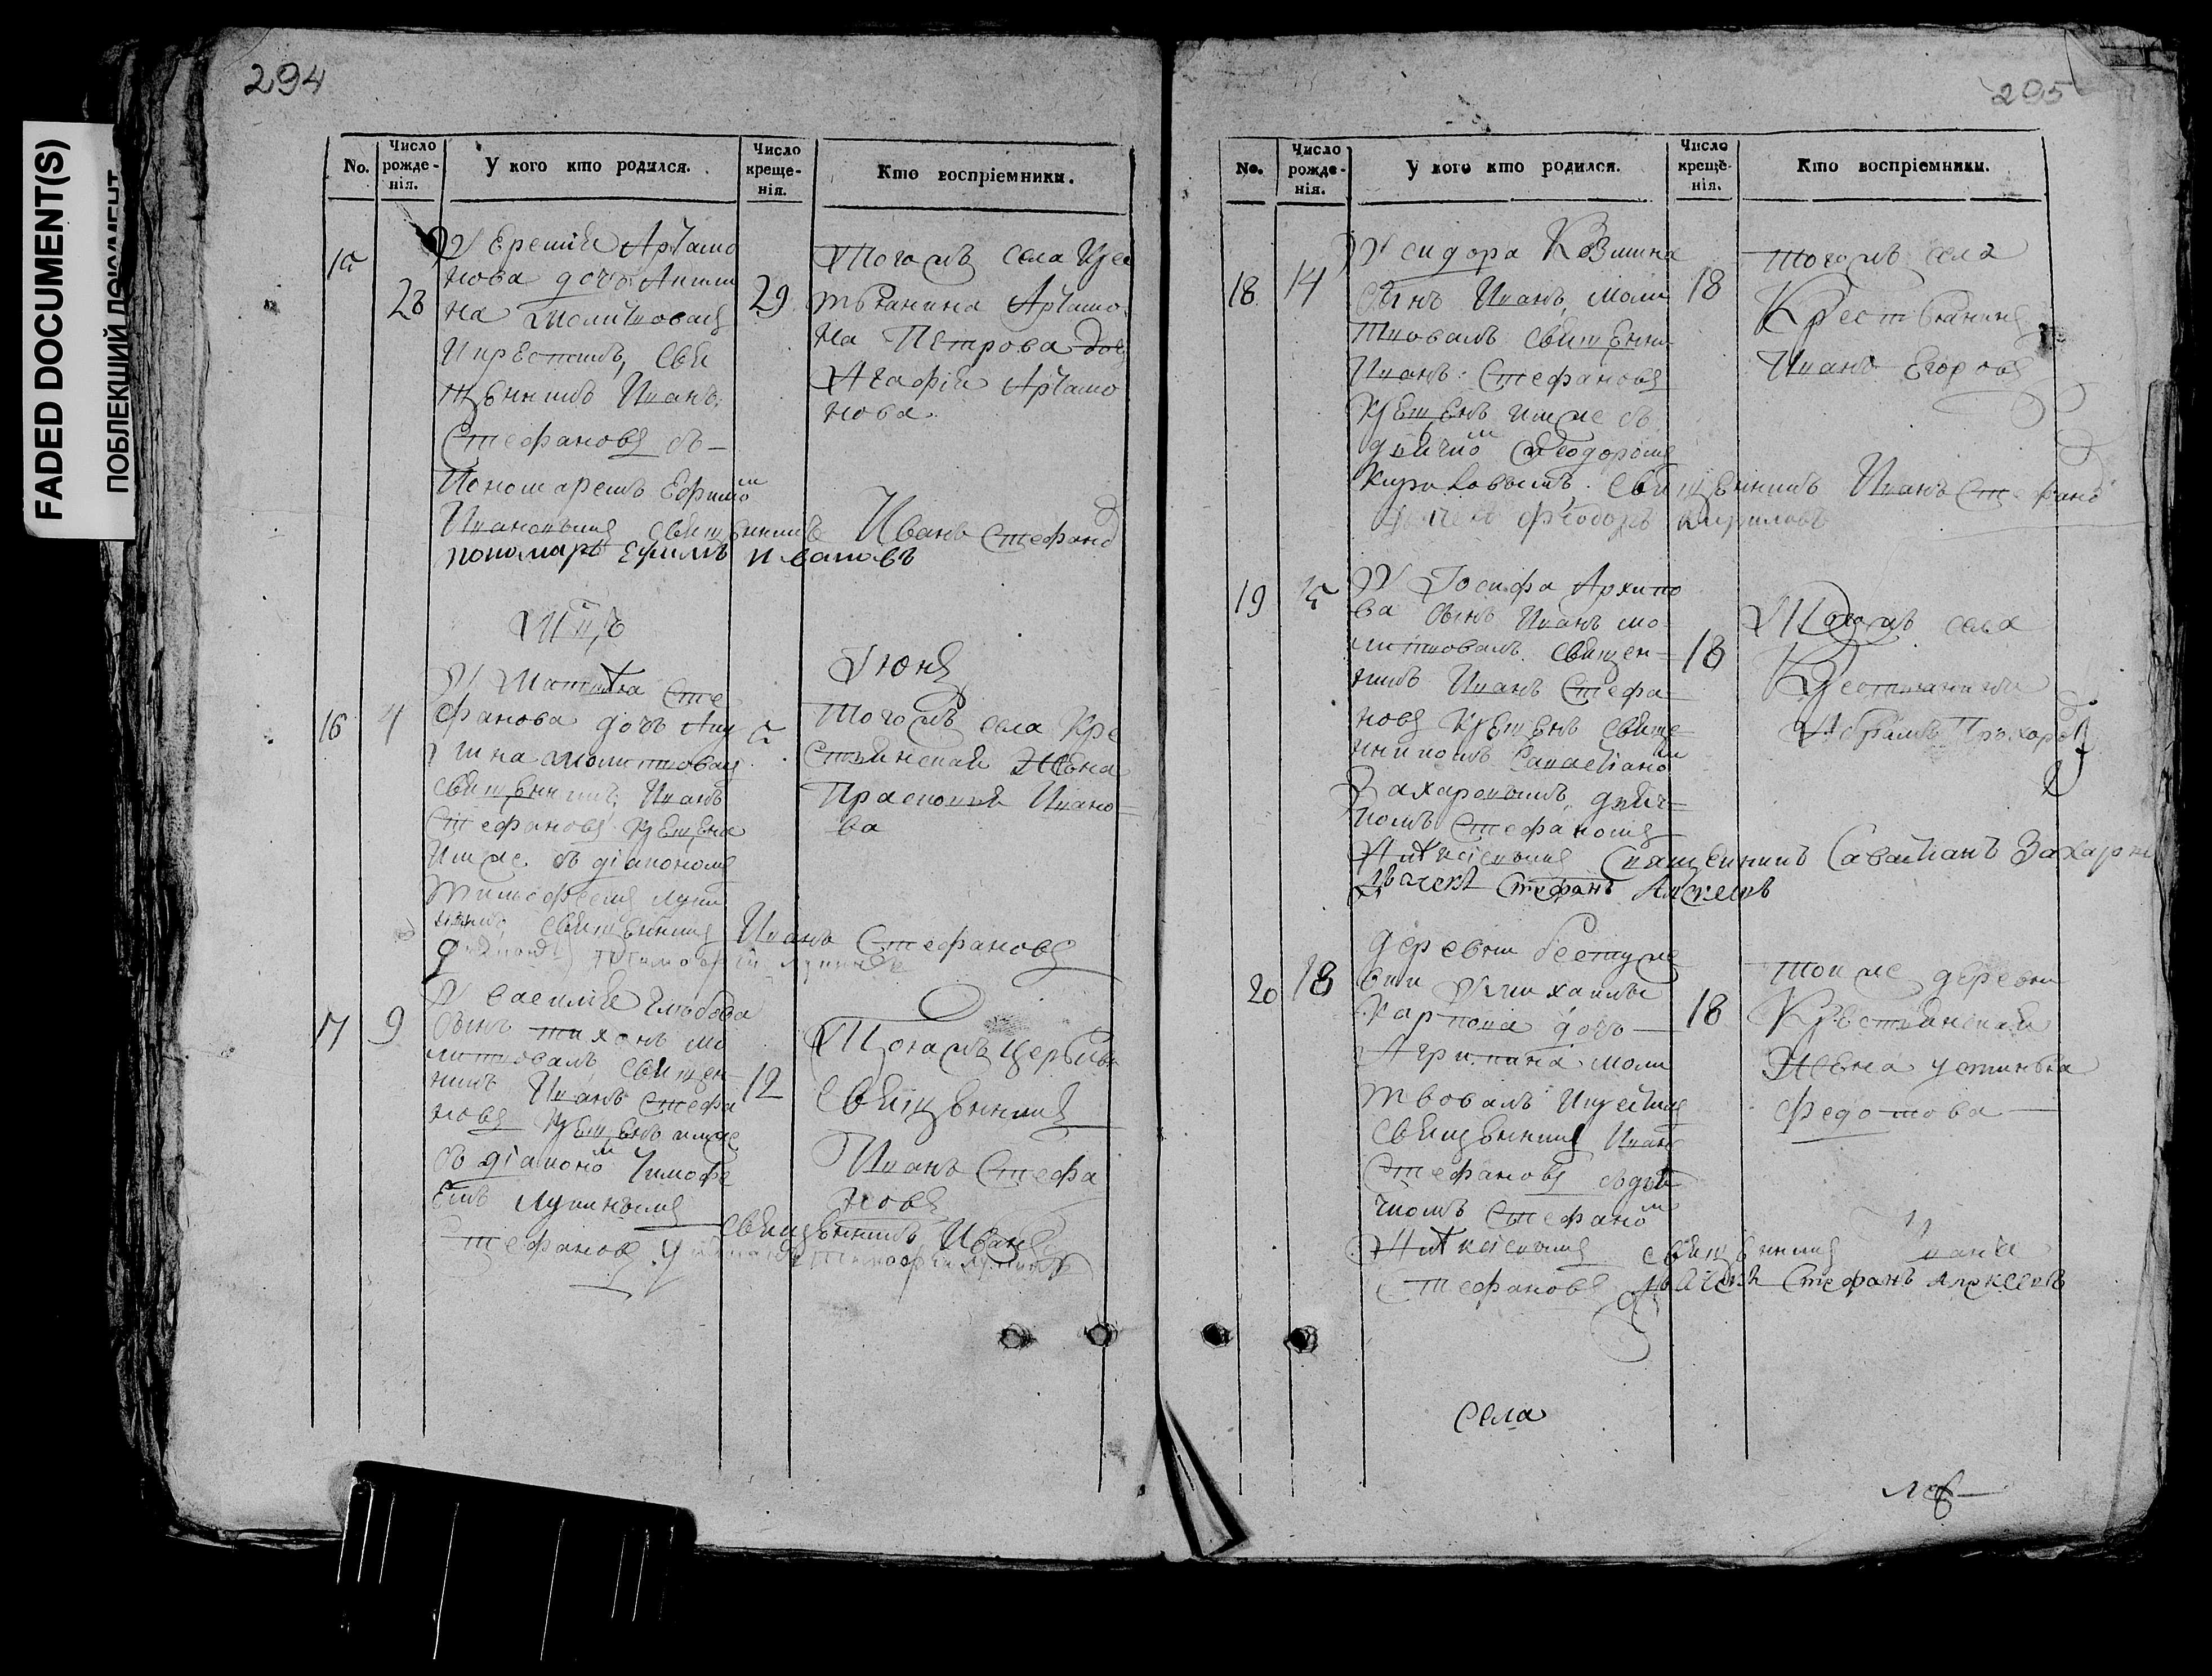 FADED DOCUMENT(S)
ПОБЛЕКШИЙ ДОКУМЕНТ
294
No.
Число рожде-нія.
У кого кто родился.
Число креще-нія.
Кто воспріемники.
15
28
У Еремѣи Артамо
нова дочь
на молитвовалъ
и крестилъ, Свя
щенникъ Иванъ
Стефановъ съ
Пономаремъ Ефимом
Ивановымъ священникъ Иванъ Стефано
пономарь Ефимъ Ивановъ
29
Тогожъ села Крес
тьянина Артамо
на Петрова дочь
Агафія Артамо
нова
Іюнь
16
4
Сте
фанова дочь Аку
лина молитвовалъ
священникъ Иванъ
Стефановъ крещена
имже съ діакономъ
Тимофеемъ Лупи
священникъ Иванъ Стефановъ
Тимофей
5
Тогожъ села Кре
стьянская Жена
Прасковья Ивано
ва
17
9
У Василія Глебова
сынъ Тихонъ мо
литвовалъ священ
никъ Иванъ Стефа
новъ крещенъ имже
съ діаконом Тимофе
емъ
священникъ Иванъ
Стефановъ
12
Тоя жъ церькви
Священникъ
Иванъ Стефа
новъ
295
No.
Число рожде-нія.
У кого кто родился.
Число креще-нія.
Кто воспріемники.
18
14
У Сидора Козмина
сынъ Иванъ, моли
твовалъ священни
Иванъ Стефановъ
крещенъ имже съ
дьячком Феодоромъ
Кириловымъ. священникъ Иванъ Стефано
Феодоръ Кириловъ
18
Тогожъ села
Крестьянинъ
Иванъ Егоровъ
19
15
У Іосифа Архипо
ва сынъ Иванъ мо
литвовалъ священ
никъ Иванъ Стефа
новъ крещенъ свяще
нникомъ Савастіаном
Захаровымъ дьяч
комъ Стефаномъ
Алексіевымъ Священникъ Савастіанъ Захаров
Дьячекъ Стефанъ Алексеевъ
18
Тогожъ села
Крестьянинъ
20
18
деревни
Михаилы
Карпова дочь
Агрипина моли
твовалъ и крестилъ
священникъ Иванъ
Стефановъ съ дья
чкомъ Стефаном
Алексіевымъ священникъ Иванъ
Стефановъ Дьячекъ Стефанъ Алексеевъ
18
Тоиже деревни
Крестьянская
Жена Устинья
Федотова
Села